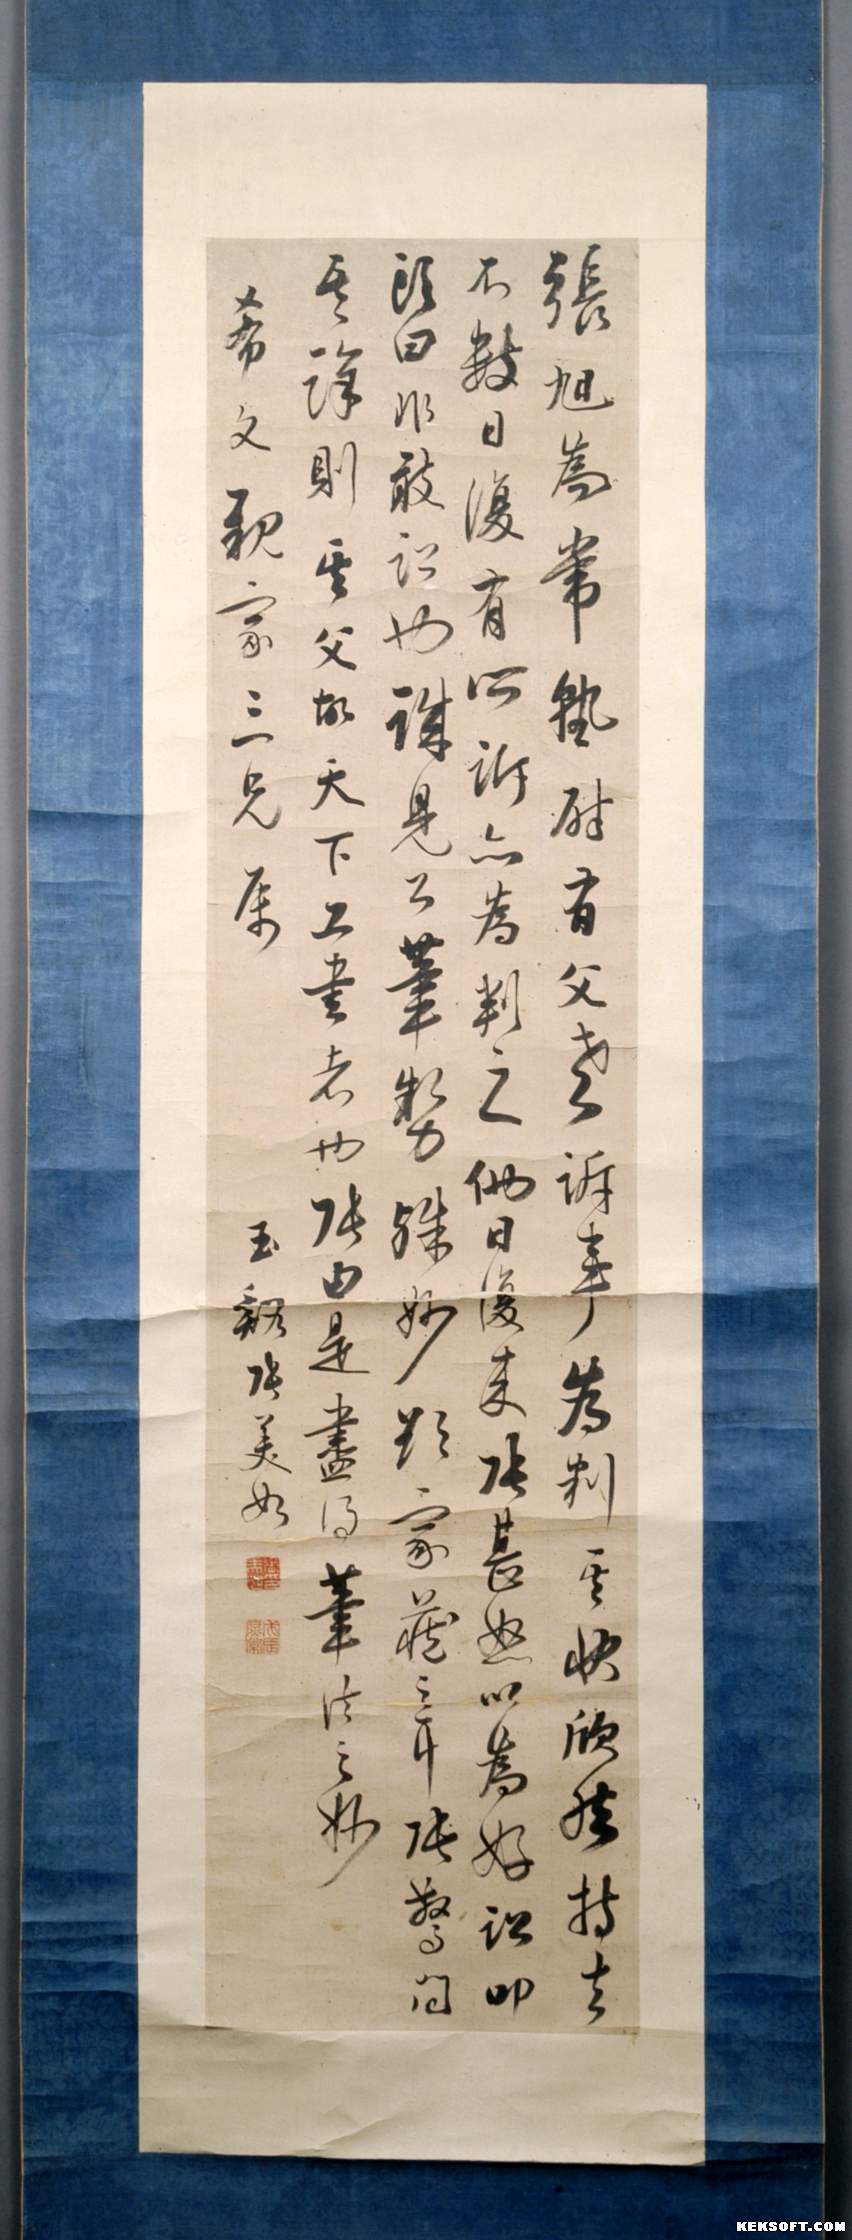 張旭為常熟尉有父老訴事為判其狀欣然持去
不數日復有所訴亦為判之他日復來張甚怒以為好訟叩
頭曰非敢訟也誠見公筆勢殊妙欲家藏之耳張驚問
其詳則其父故天下工書者也張由是盡得筆法之妙
希文親家三兄屬
玉谿張美如
KEKSOFT.COM